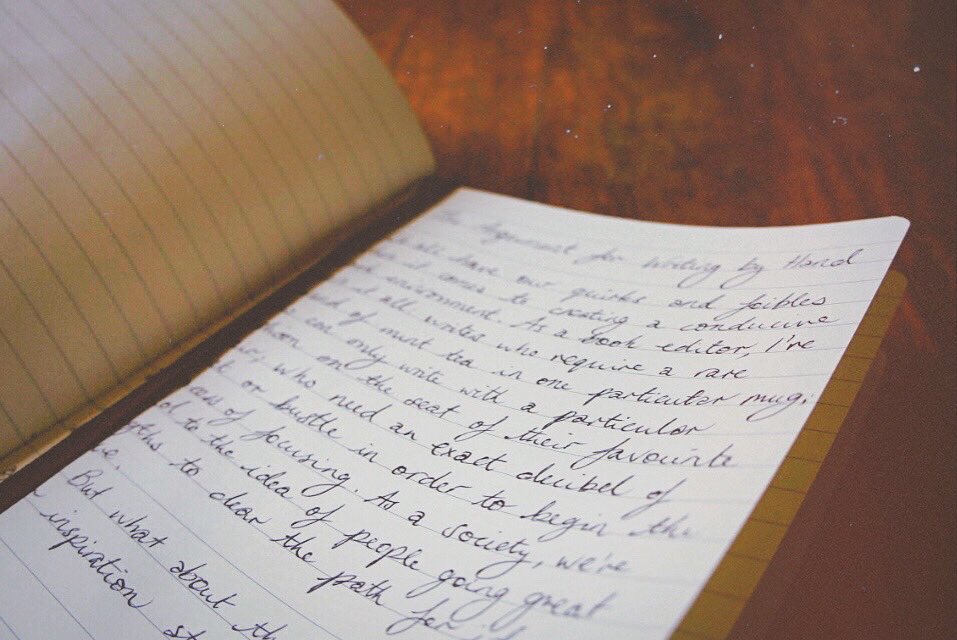 Argument for Writing by Hand
all have our quirks and foibles
it comes to creating a conducive
environment. As a book editor, I've
met all writers who require a rare
of mint tea in one particular mug;
can only write with a particular
on the seat of their favourite
who need an exact decibel of
or bustle in order to begin the
of focusing. As a society, we're
to the idea of people going great
to clear the path for
But what about th
inspiration st